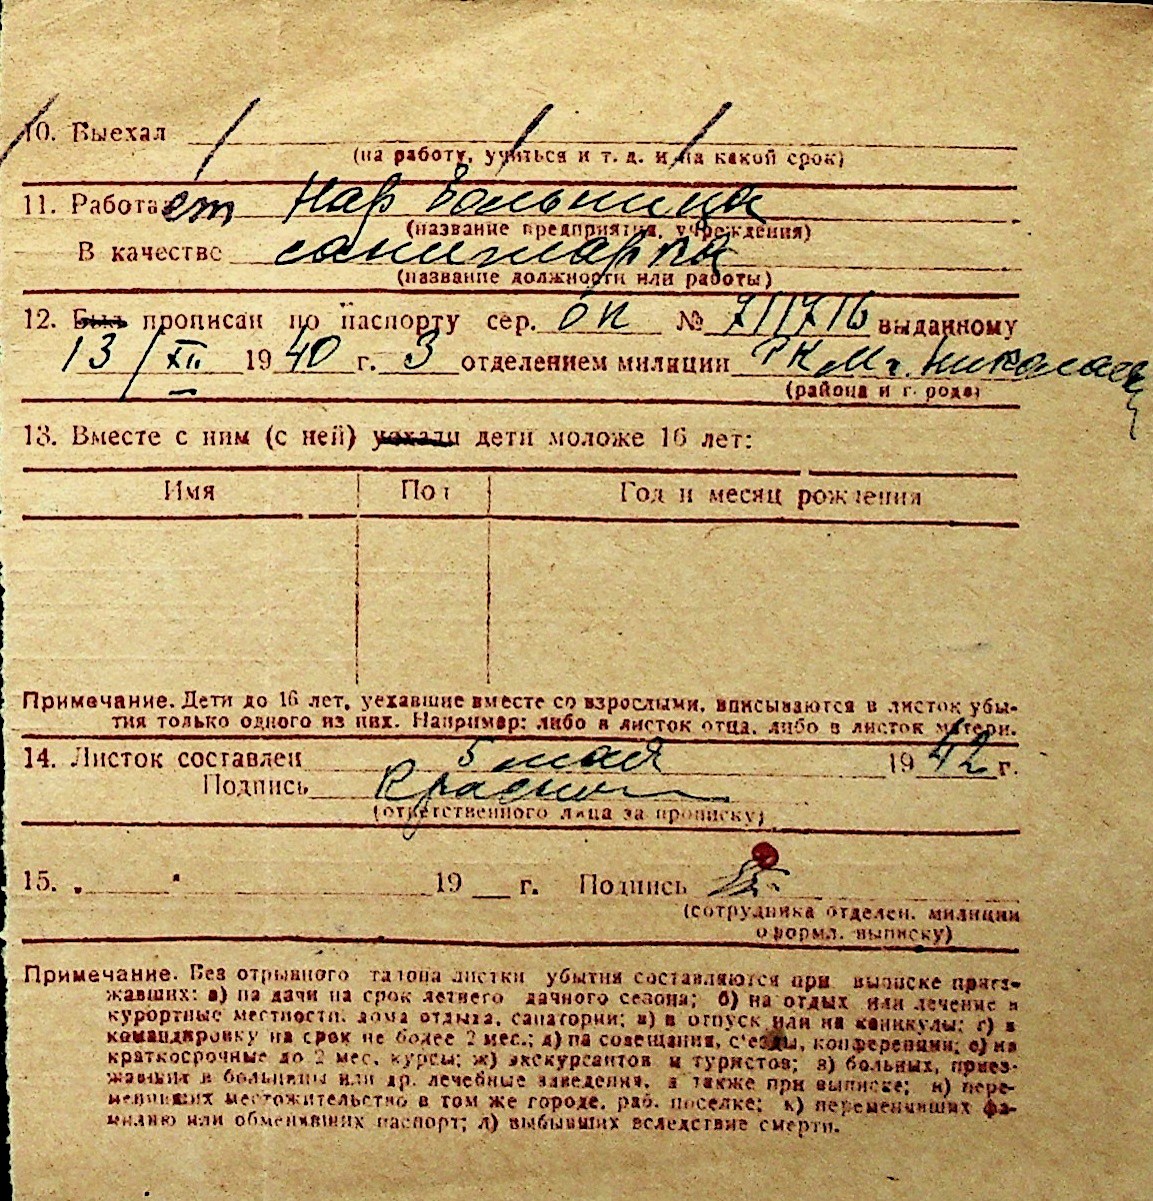 10. Выехал
(на работу, учиться и т. д. и на какой срок)
11. Работает Нар больница
(название предприятия, учреждения)
В качестве санитарка
(название должности или работы)
12. Был прописан по паспорту сер. ОК № 711716 выданному
13/XII 1940 г. 3 отделением милиции РКМ г. Николаев
(района и города)
13. Вместе с ним (с ней) уехали дети моложе 16 лет:
Имя Пол Год и месяц рождения
Примечание. Дети до 16 лет, уехавшие вместе со взрослыми, вписываются в листок убы-
тия только одного из них. Например: либо в листок отца, либо в листок матери.
14. Листок составлен 5 мая 1942 г.
Подпись
(ответственного лица за прописку)
15. „ " 19 г. Подпись
(сотрудника отделен. милиции
оформл. выписку)
Примечание. Без отрывного талона листки убытия составляются при выписке приез-
жавших: а) на дачи на срок летнего дачного сезона; б) на отдых или лечение в
курортные местности, дома отдыха, санатории; в) в отпуск или на каникулы; г) в
командировку на срок не более 2 мес.; д) на совещания, съезды, конференции; е) на
краткосрочные до 2 мес. курсы; ж) экскурсантов и туристов; з) больных, приез-
жавших в больницы или др. лечебные заведения, а также при выписке; и) пере-
менивших местожительство в том же городе, раб. поселке; к) переменивших фа-
милию или обменявших паспорт; л) выбывших вследствие смерти.